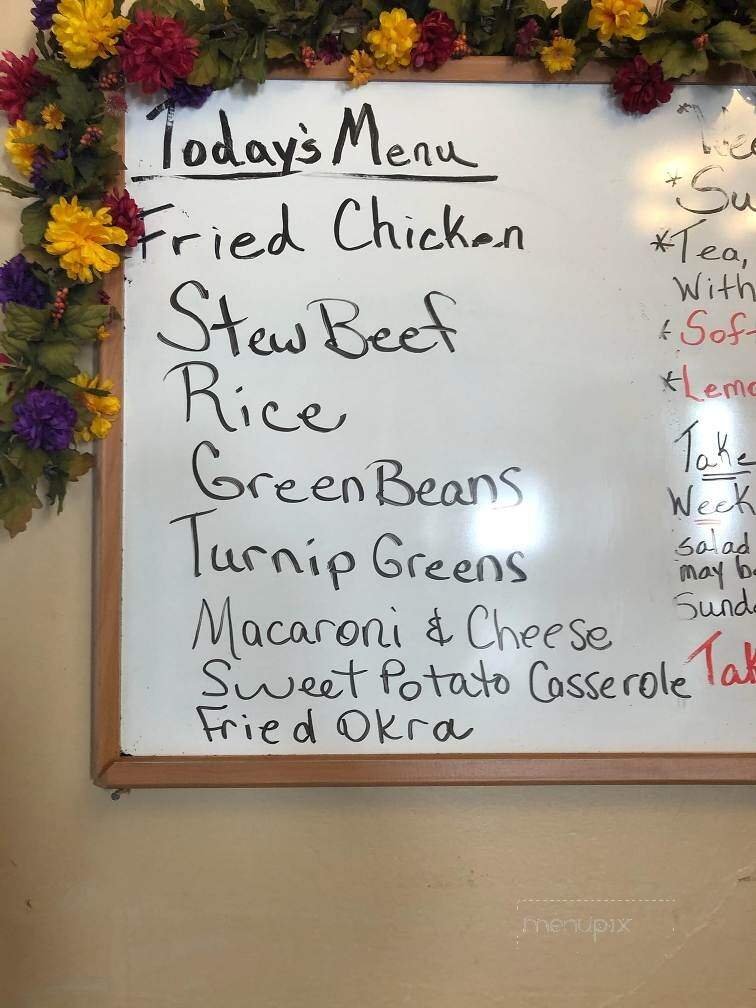 Today's Menu
Fried Chicken
Stew Beef
Rice
Green Beans
Turnip Greens
Macaroni & Cheese
Sweet Potato Casserole
Fried Okra
*Tea,
With
Take
Week
salad
may
menupix